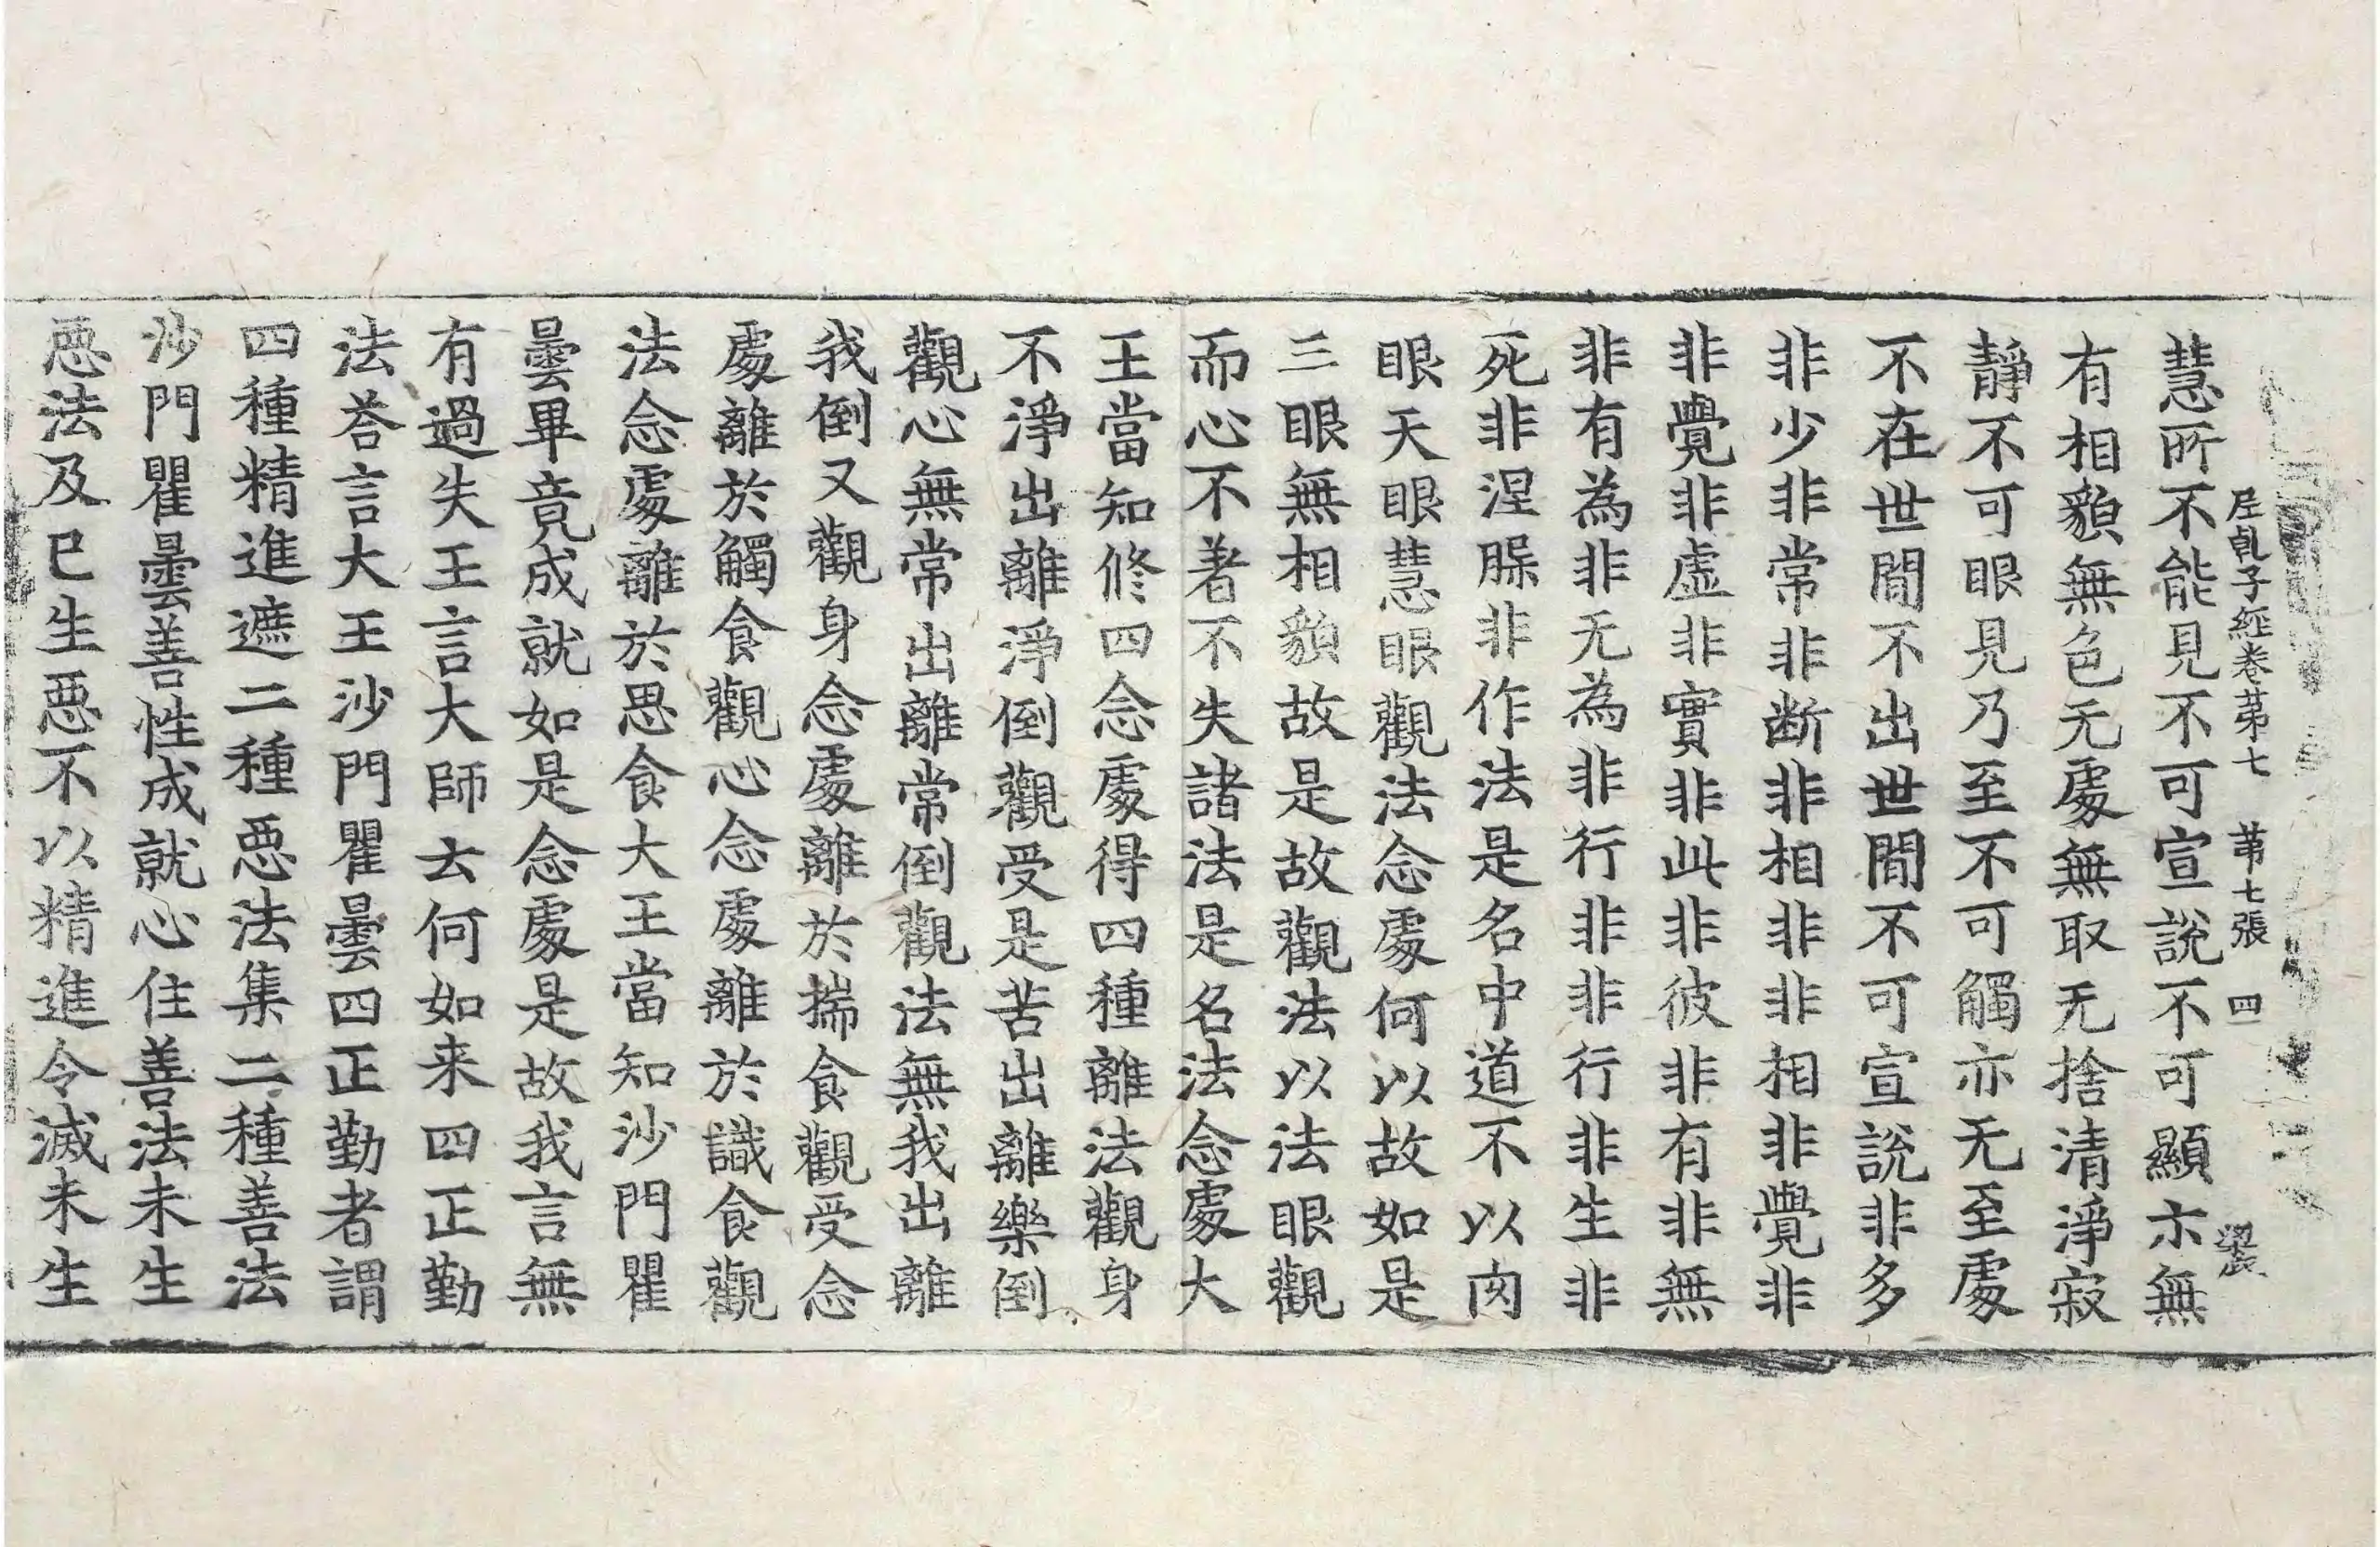 尼乹子經卷苐七 苐七張 四
慧所不能見不可宣說不可顯示無
有相貌無色无處無取无捨清淨寂
靜不可眼見乃至不可觸亦无至處
不在世間不出世間不可宣說非多
非少非常非断非相非非相非覺非
非覺非虛非實非此非彼非有非無
非有為非无為非行非非行非生非
死非涅脲非作法是名中道不以肉
眼天眼慧眼觀法念處何以故如是
三眼無相貌故是故觀法以法眼觀
而心不著不失諸法是名法念處大
王當知修四念處得四種離法觀身
不淨出離淨倒觀受是苦出離樂倒
觀心無常出離常倒觀法無我出離
我倒又觀身念處離於揣食觀受念
處離於觸食觀心念處離於識食觀
法念處離於思食大王當知沙門瞿
曇畢竟成就如是念處是故我言無
有過失王言大師云何如来四正勤
法荅言大王沙門瞿曇四正勤者謂
四種精進遮二種惡法集二種善法
沙門瞿曇善性成就心住善法未生
惡法及已生惡不以精進令滅未生